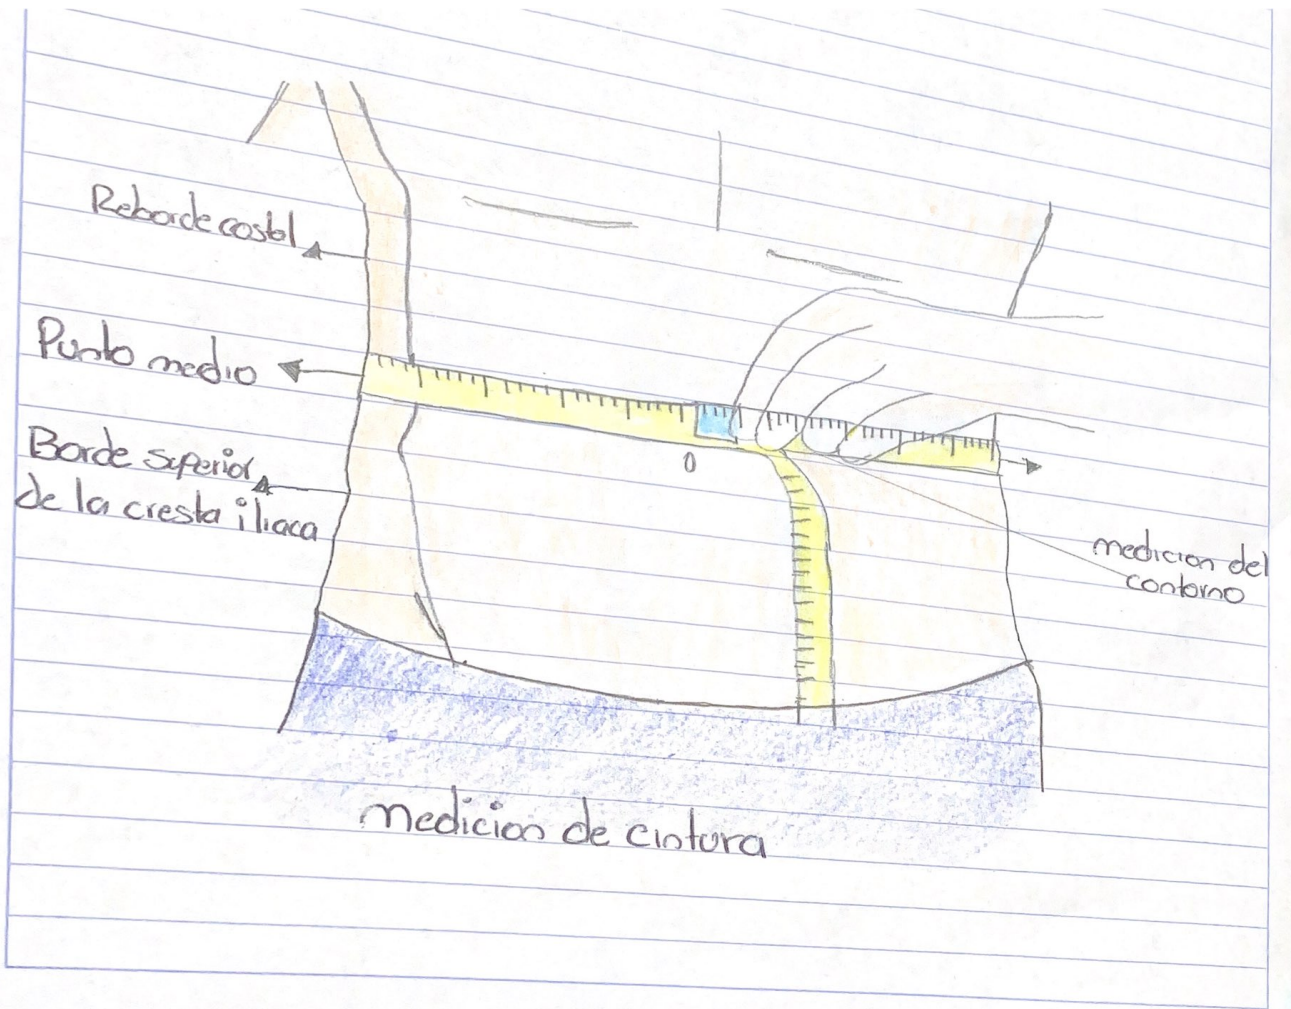 Reborde costl
Punto medio
Borde superior
de la cresta iliaca
0
medicion del
contorno
medicion de cintura